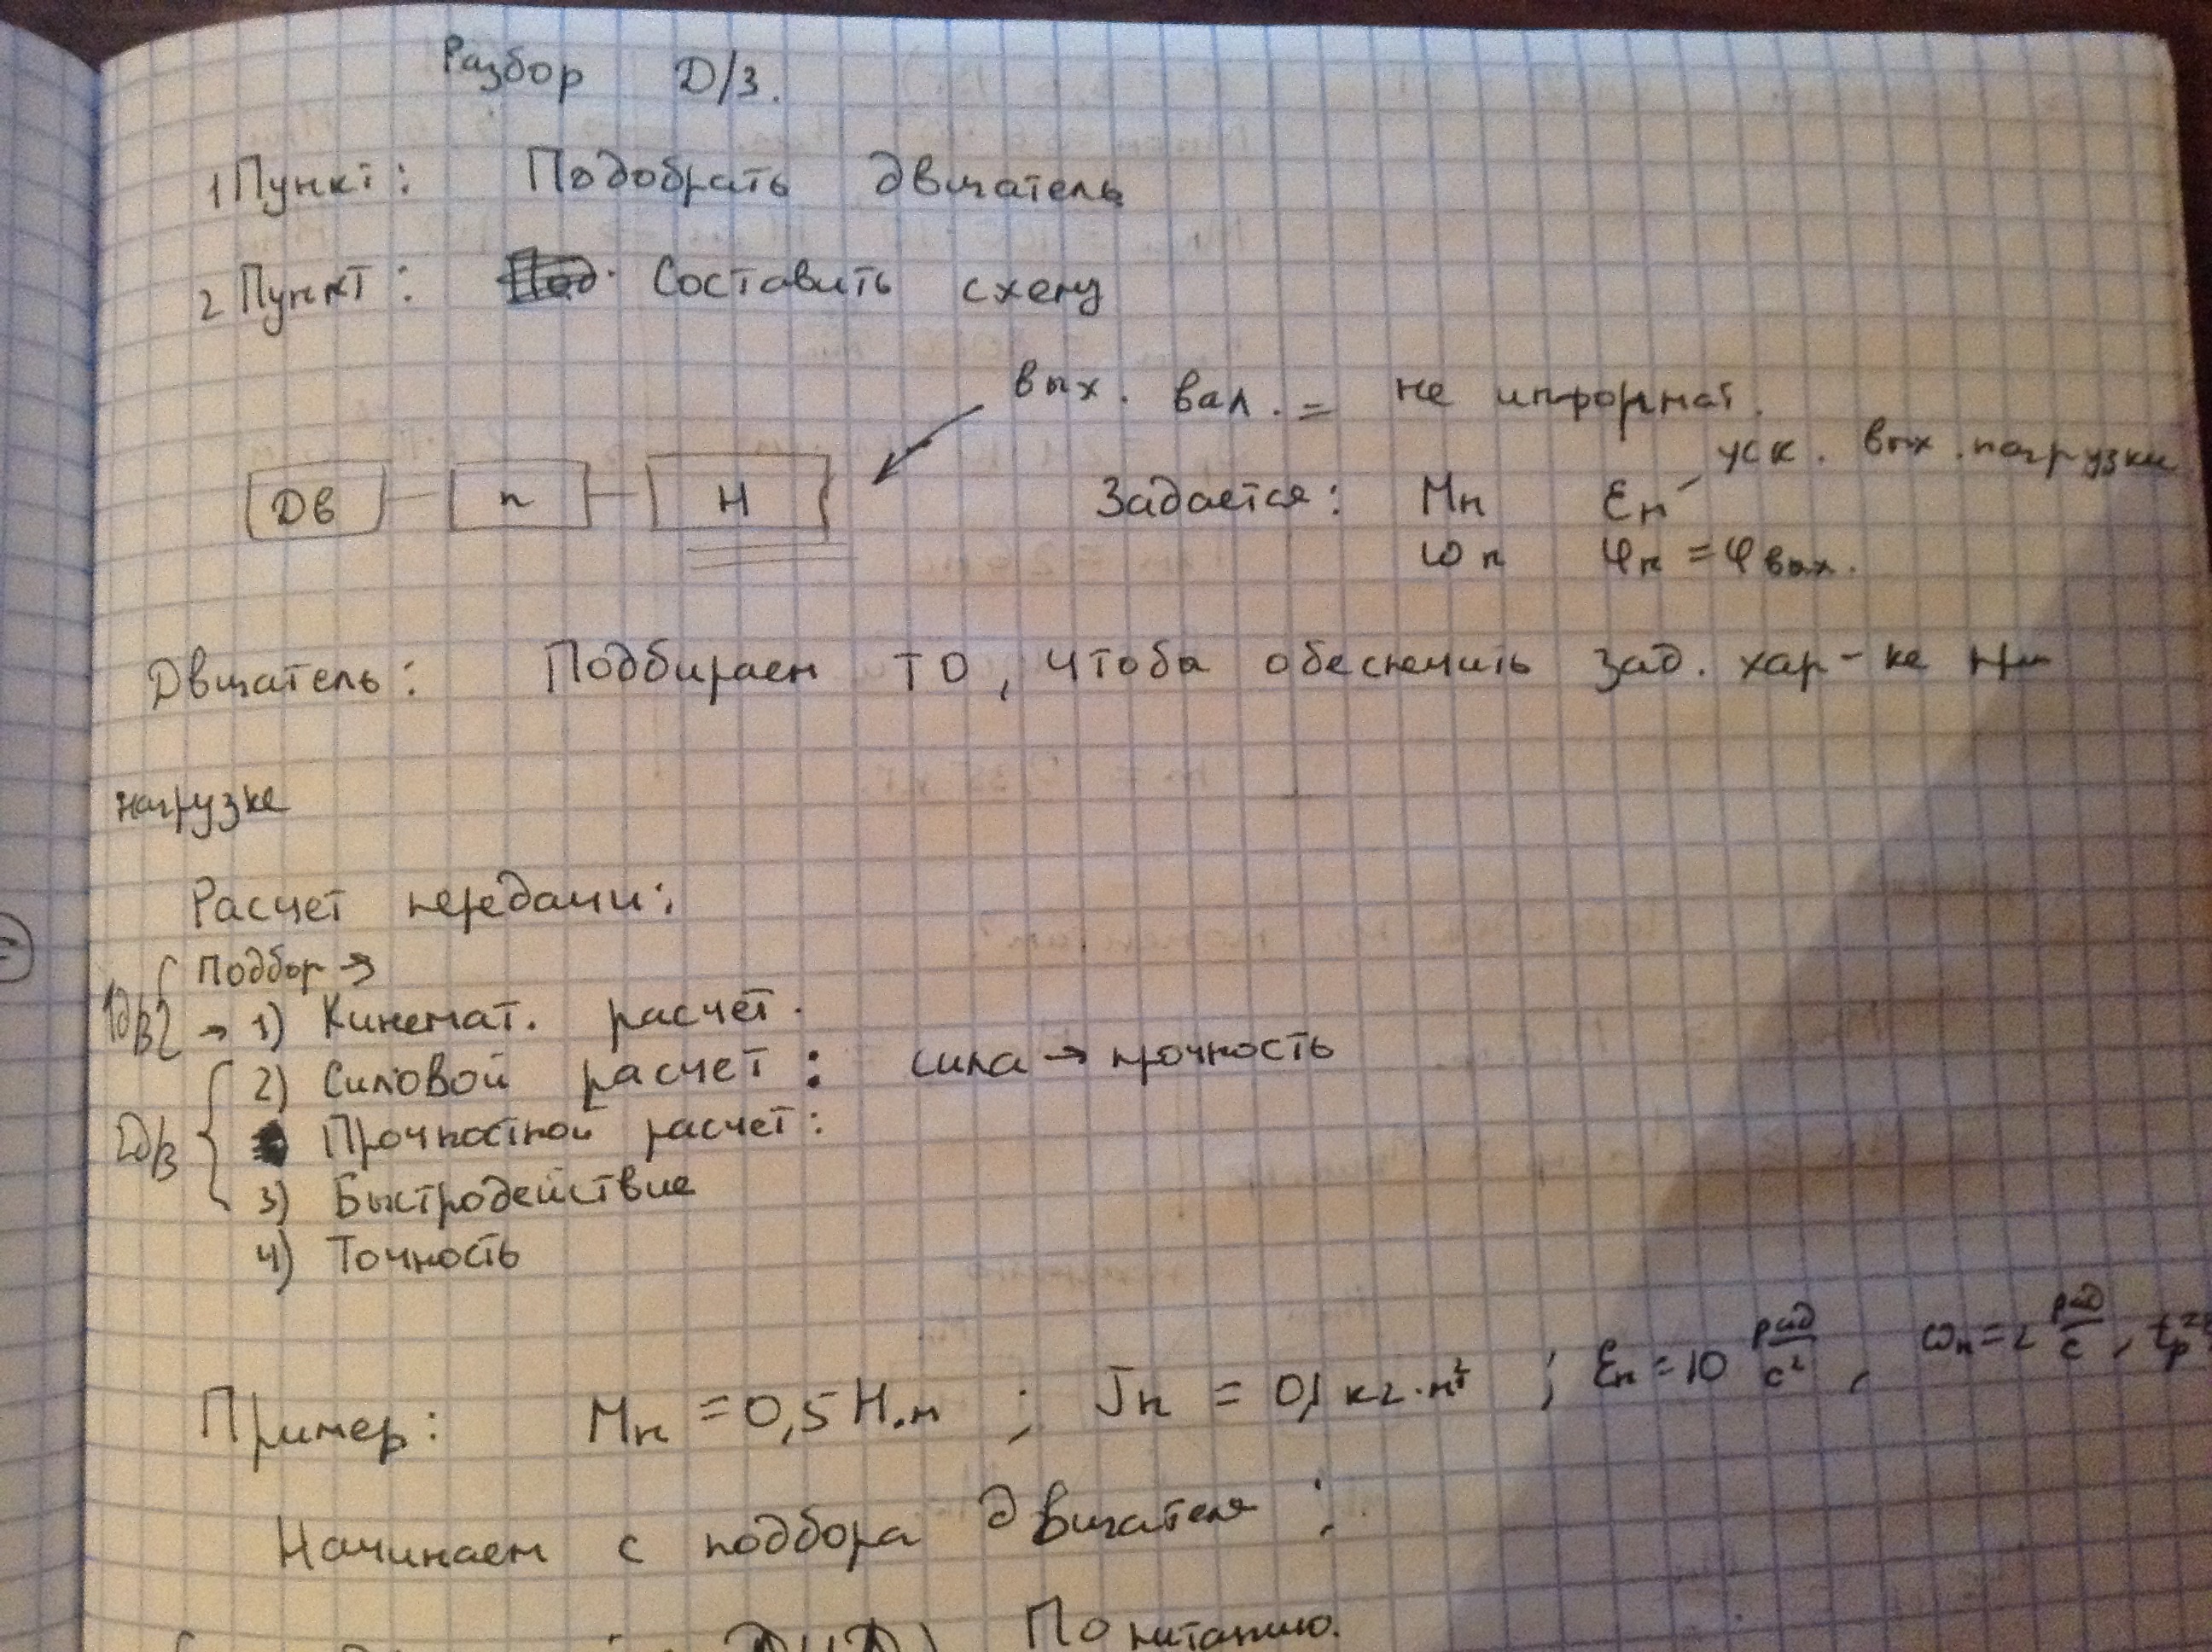 Разбор Д/З.
1 Пункт: Подобрать двигатель
2 Пункт: Составить схему
вых. вал. = не информат.
уск. вых. нагрузки
Дв n Н Задается: Mн εн
ωн φн = φвых.
Двигатель: Подбираем ТО, чтобы обеспечить зад. хар-ке
нагрузке
Расчет передачи:
Подбор →
1д/з → 1) Кинемат. расчет.
2) Силовой расчет: сила → прочность
2д/з Прочностной расчет:
3) Быстродействие
4) Точность
Пример: Mн = 0,5 Н.м ; Jн = 0,1 кг·м² ; εн = 10 рад/с² , ωн = 2 рад/с , tр =
Начинаем с подбора двигателя ;
По питанию.